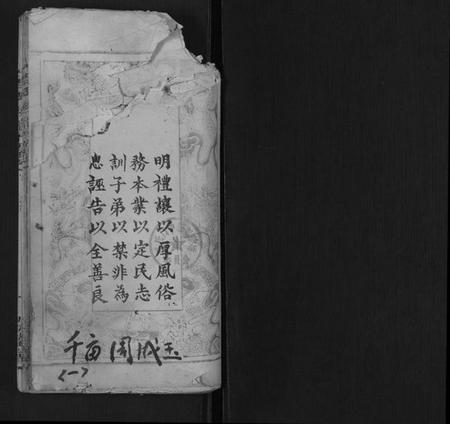 明禮讓以厚風俗
務本業以定民志
訓子弟以禁非為
息誣告以全善良
千亩周成玉
〈一〉